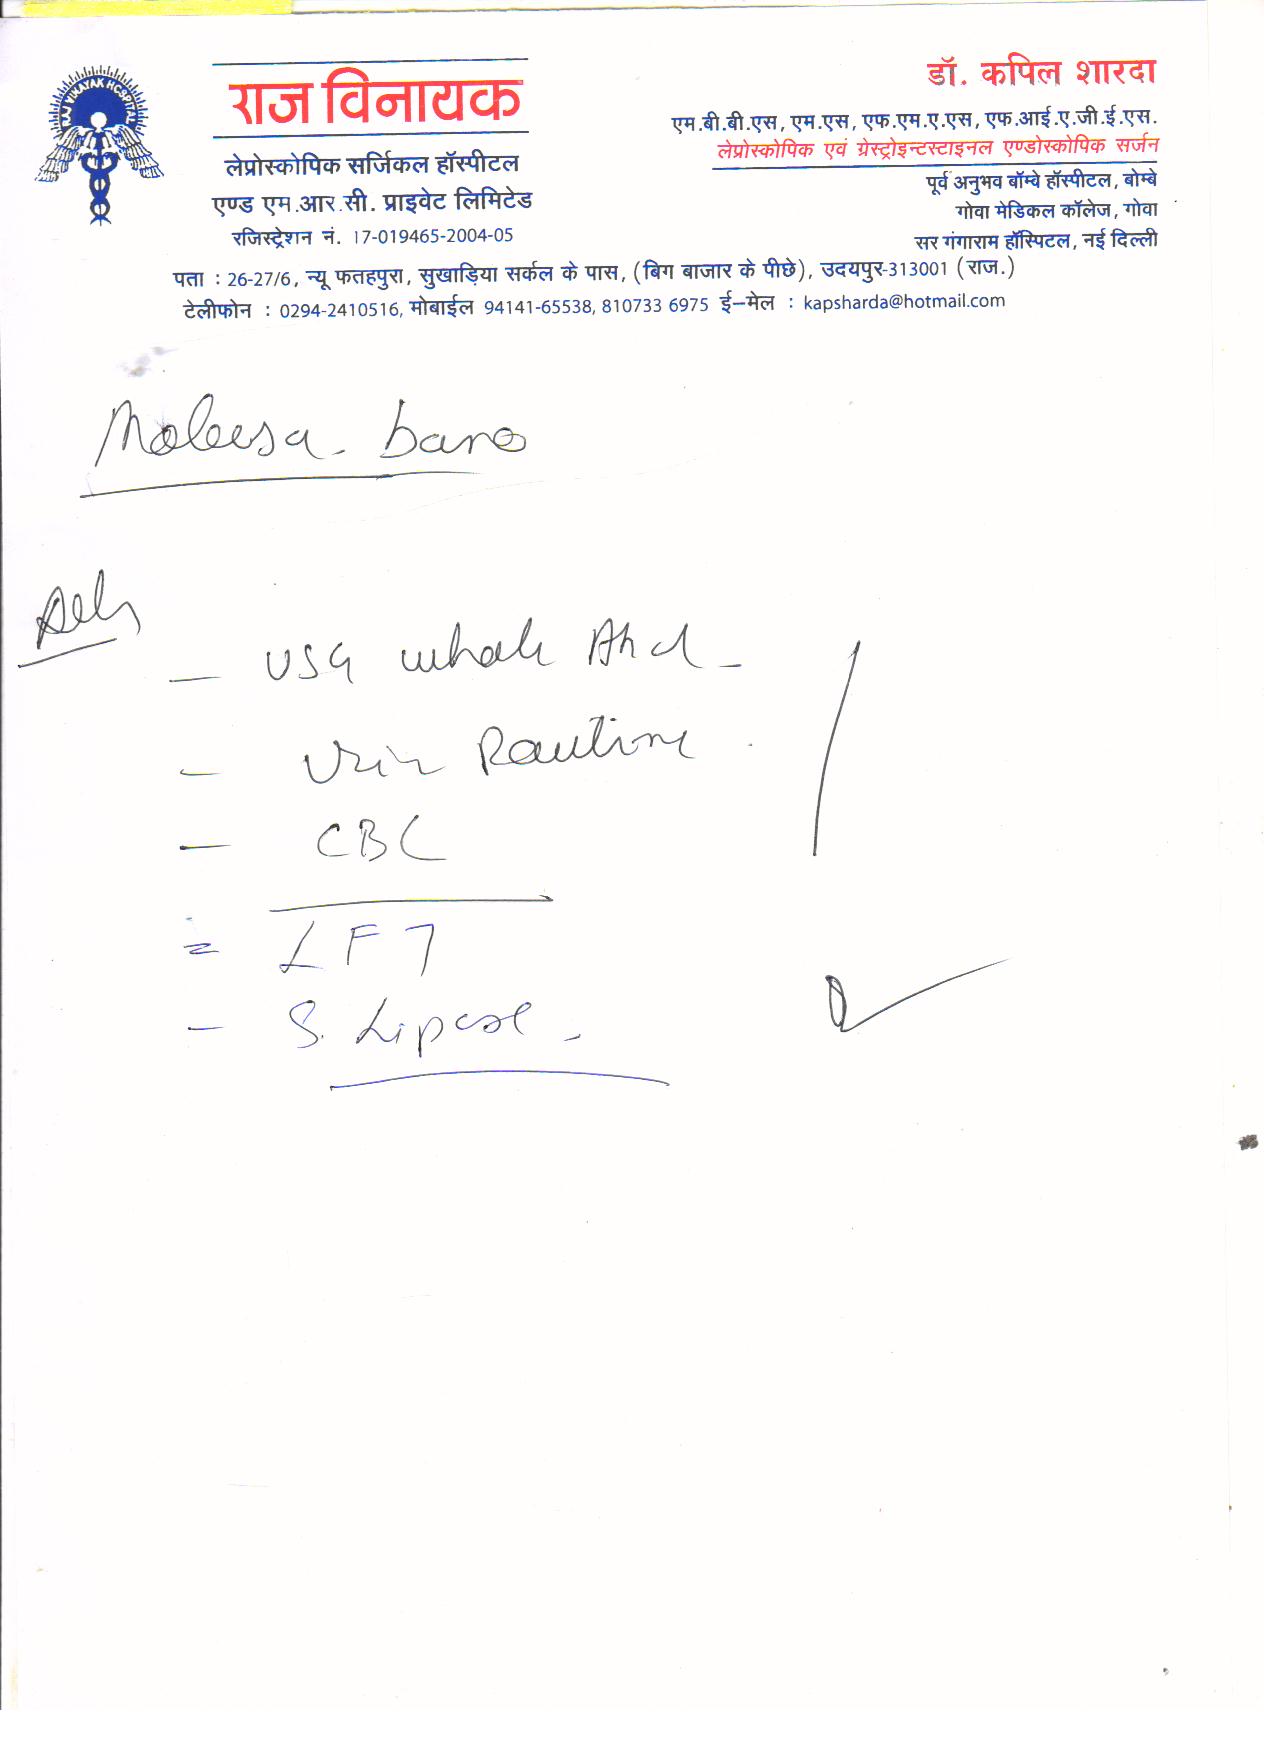 राज विनायक
लेप्रोस्कोपिक सर्जिकल हॉस्पीटल
एण्ड एम.आर.सी. प्राइवेट लिमिटेड
रजिस्ट्रेशन नं. 17-019465-2004-05
डॉ. कपिल शारदा
एम.बी.बी.एस, एम.एस, एफ.एम.ए.एस, एफ.आई.ए.जी.ई.एस.
लेप्रोस्कोपिक एवं ग्रेस्ट्रोइन्टस्टाइनल एण्डोस्कोपिक सर्जन
पूर्व अनुभव बॉम्बे हॉस्पीटल, बोम्बे
गोवा मेडिकल कॉलेज, गोवा
सर गंगाराम हॉस्पिटल, नई दिल्ली
पता : 26-27/6, न्यू फतहपुरा, सुखाड़िया सर्कल के पास, (बिग बाजार के पीछे), उदयपुर-313001 (राज.)
टेलीफोन : 0294-2410516, मोबाईल 94141-65538, 810733 6975 ई-मेल : kapsharda@hotmail.com
bano
- USG whole Abd -
- Urin Routine
- CBC
= LFT
- S. Lipase -